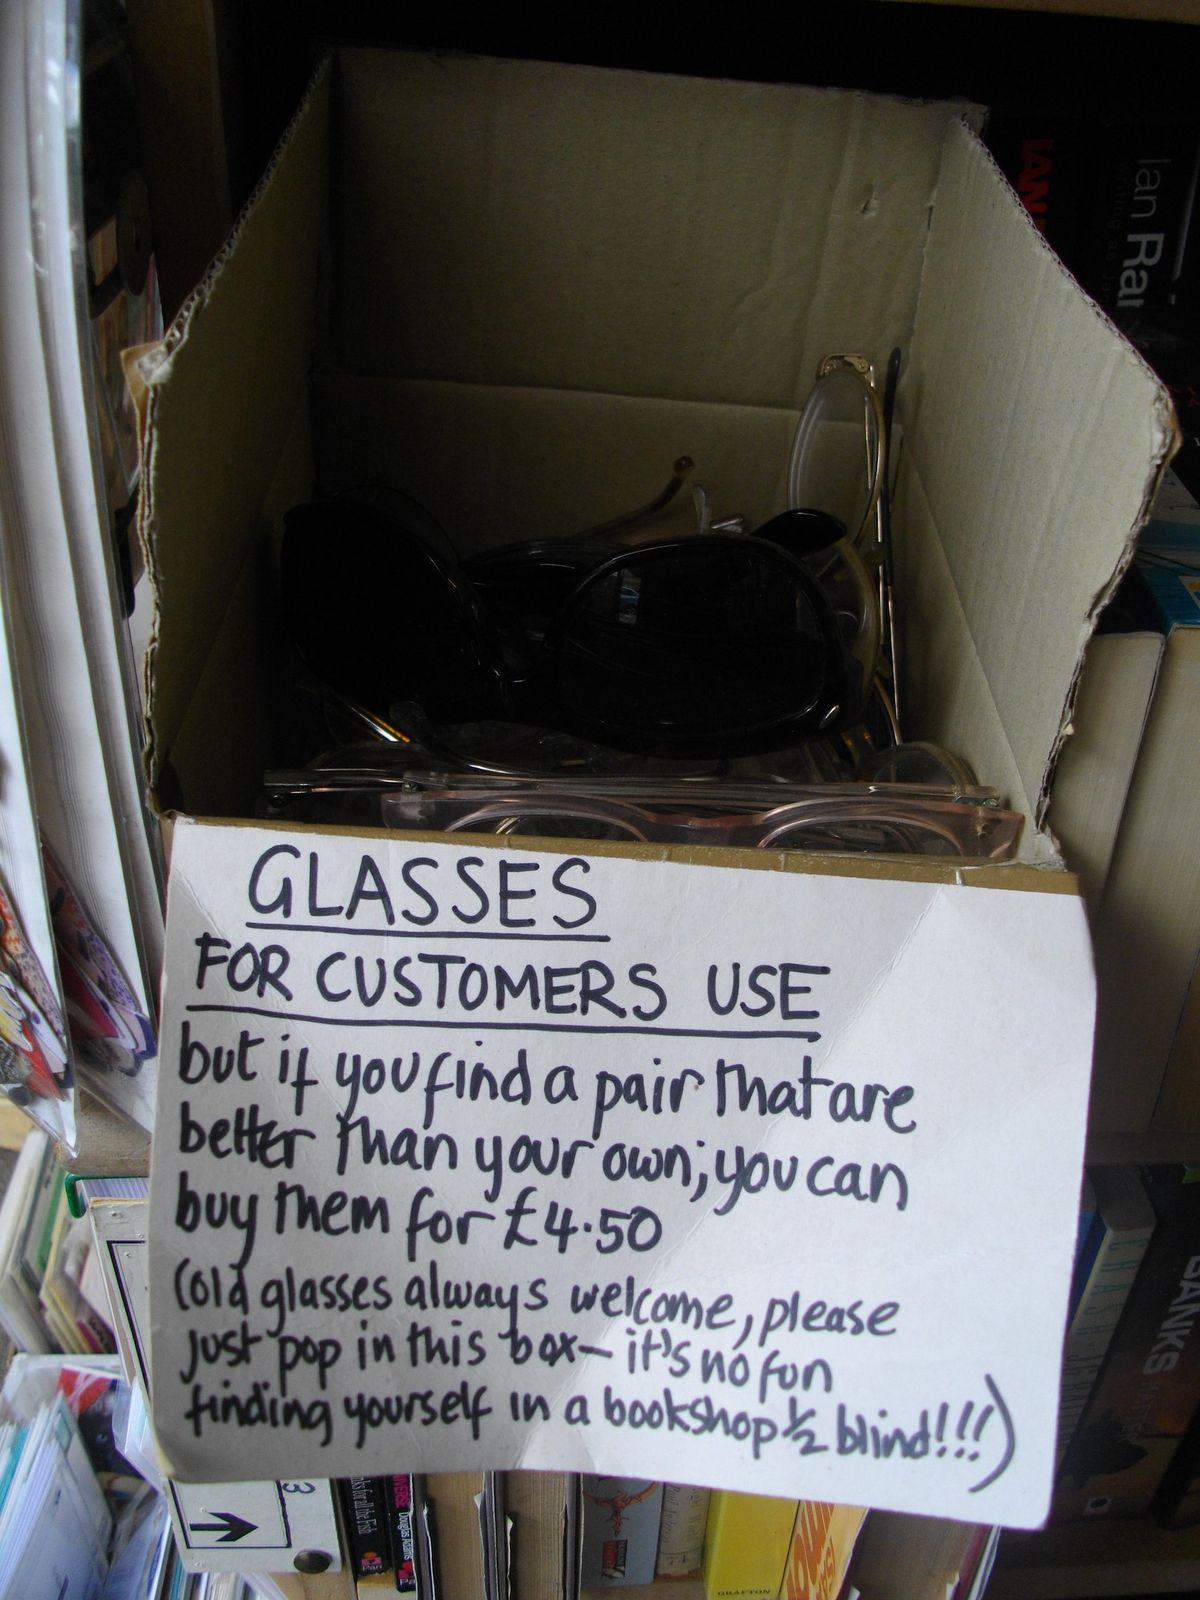 GLASSES
FOR CUSTOMERS USE
but if you find a pair that are
better than your own; you can
buy them for £4.50
(old glasses always welcome, please
just pop in this box- it's no fun
finding yourself in a bookshop ½ blind!!!)
Ian
BANKS
3
Pan
Douglas Adams
GRAFTON